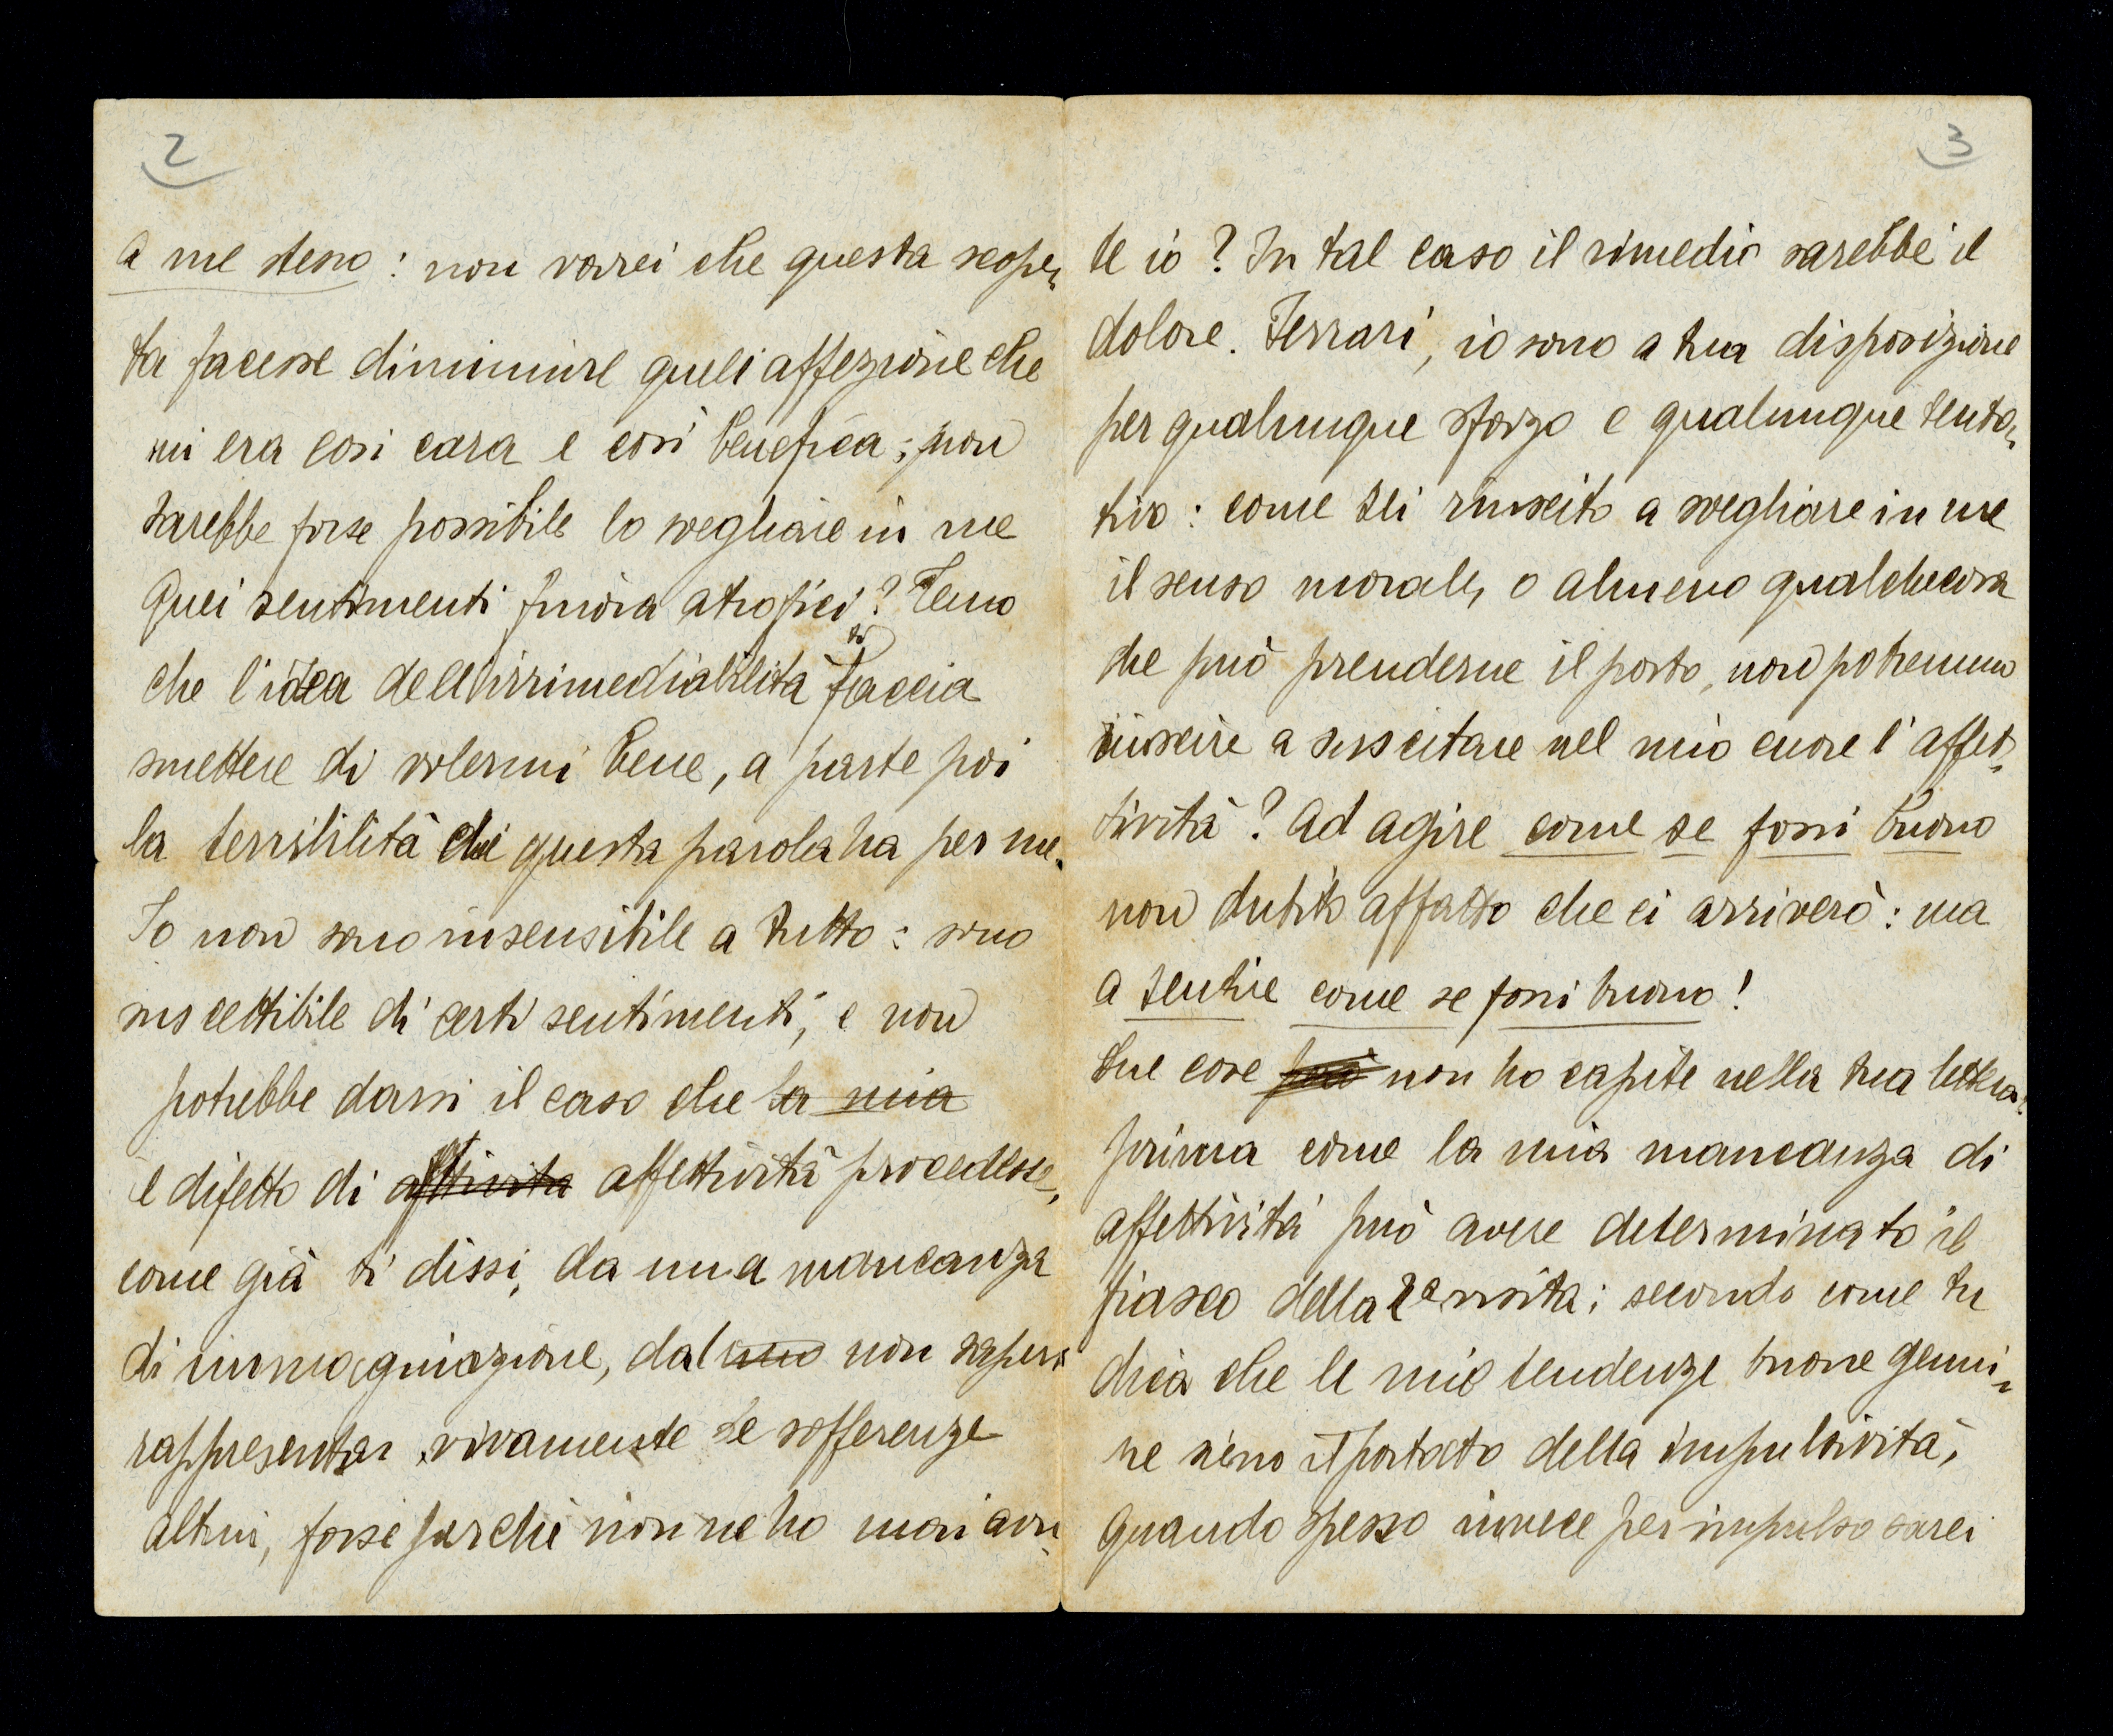 2
a me stesso : non vorrei che questa scoper-
ta facesse diminuire quell'affezione che
mi era così cara e così benefica ; non
sarebbe forse possibile lo svegliare in me
quei sentimenti finora atrofici ? Temo
che l'idea dell'irrimediabilità ti faccia
smettere di volermi bene, a parte poi
la terribilità che questa parola ha per me.
Io non sono insensibile a tutto : sono
suscettibile di certi sentimenti, e non
potrebbe darsi il caso che la mia
il difetto di attività affettività procedesse,
come già ti dissi, da una mancanza
di immaginazione, dal mio non saper
rappresentar vivamente le sofferenze
altrui, forse perché non ne ho mai avu-
3
te io ? In tal caso il rimedio sarebbe il
dolore. Ferrari, io sono a tua disposizione
per qualunque sforzo e qualunque tenta-
tivo : come sei riuscito a svegliare in me
il senso morale, o almeno qualchecosa
che può prenderne il posto, non potremmo
riuscire a suscitare nel mio cuore l'affet-
tività ? Ad agire come se fossi buono
non dubito affatto che ci arriverò : ma
a sentire come se fossi buono !
Due cose però non ho capite nella tua lettera :
prima come la mia mancanza di
affettività può avere determinato il
fiasco della 2a visita ; secondo come tu
dica che le mie tendenze buone genui-
ne sieno il portato della impulsività,
quando spesso invece per impulso sarei